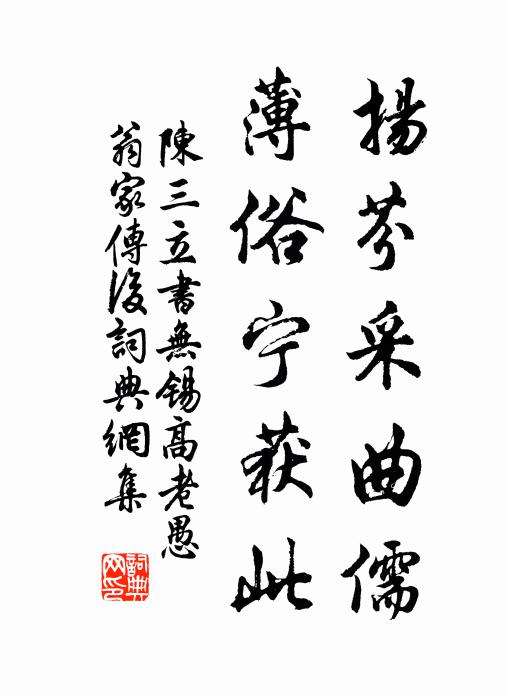 揚芬采曲儒
薄俗宁获此
陳三立書無錫高老愚
翁家傳後詞典網集
詞典网印